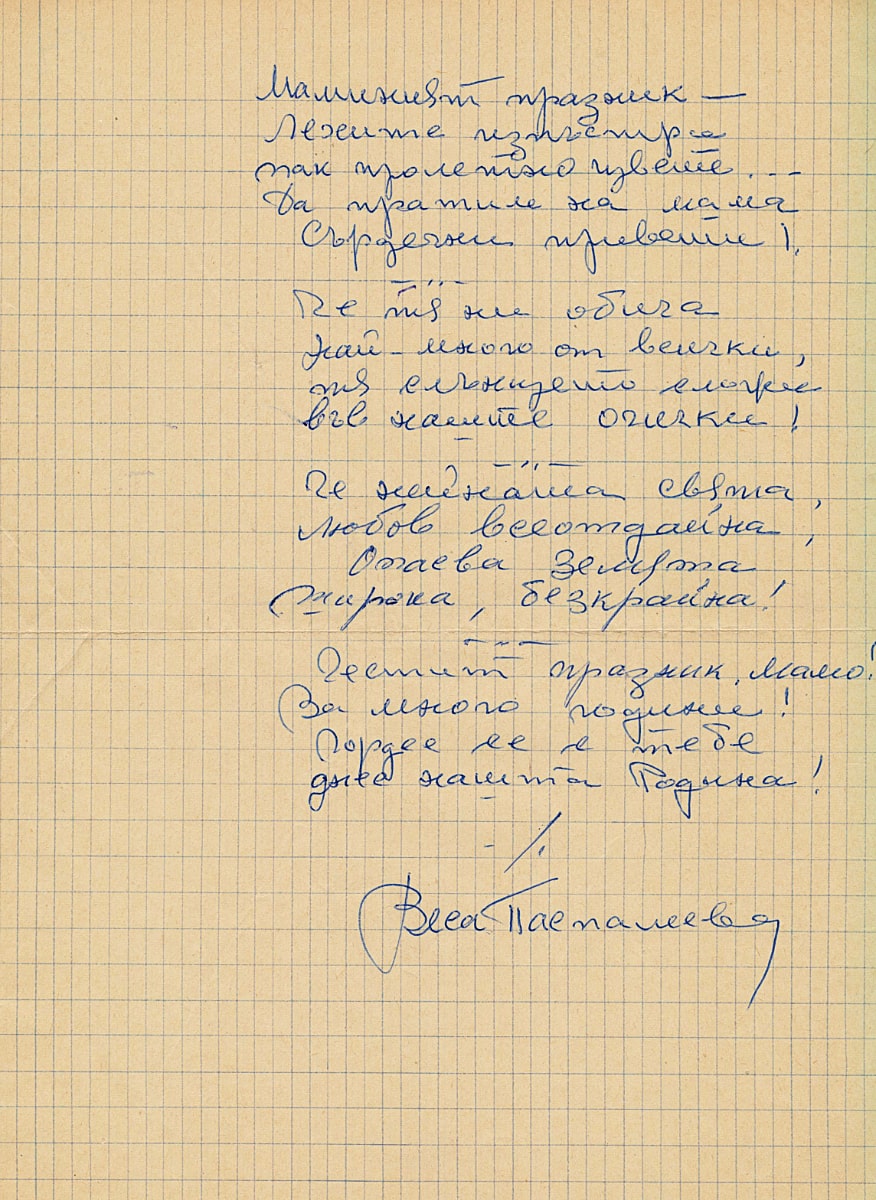 Маминият празник —
Лехите изпъстри
пак пролетно цвете...
Да пратим на мама
Сърдечни привети!
Че тя ни обича
най-много от всички,
тя слънцето сложи
във наште очички!
Че нейната свята,
любов всеотдайна
Опасва Земята
широка, безкрайна!
Честит празник, мамо!
За много години!
Гордее се с тебе
днес нашта Родина!
Веса Паспалеева